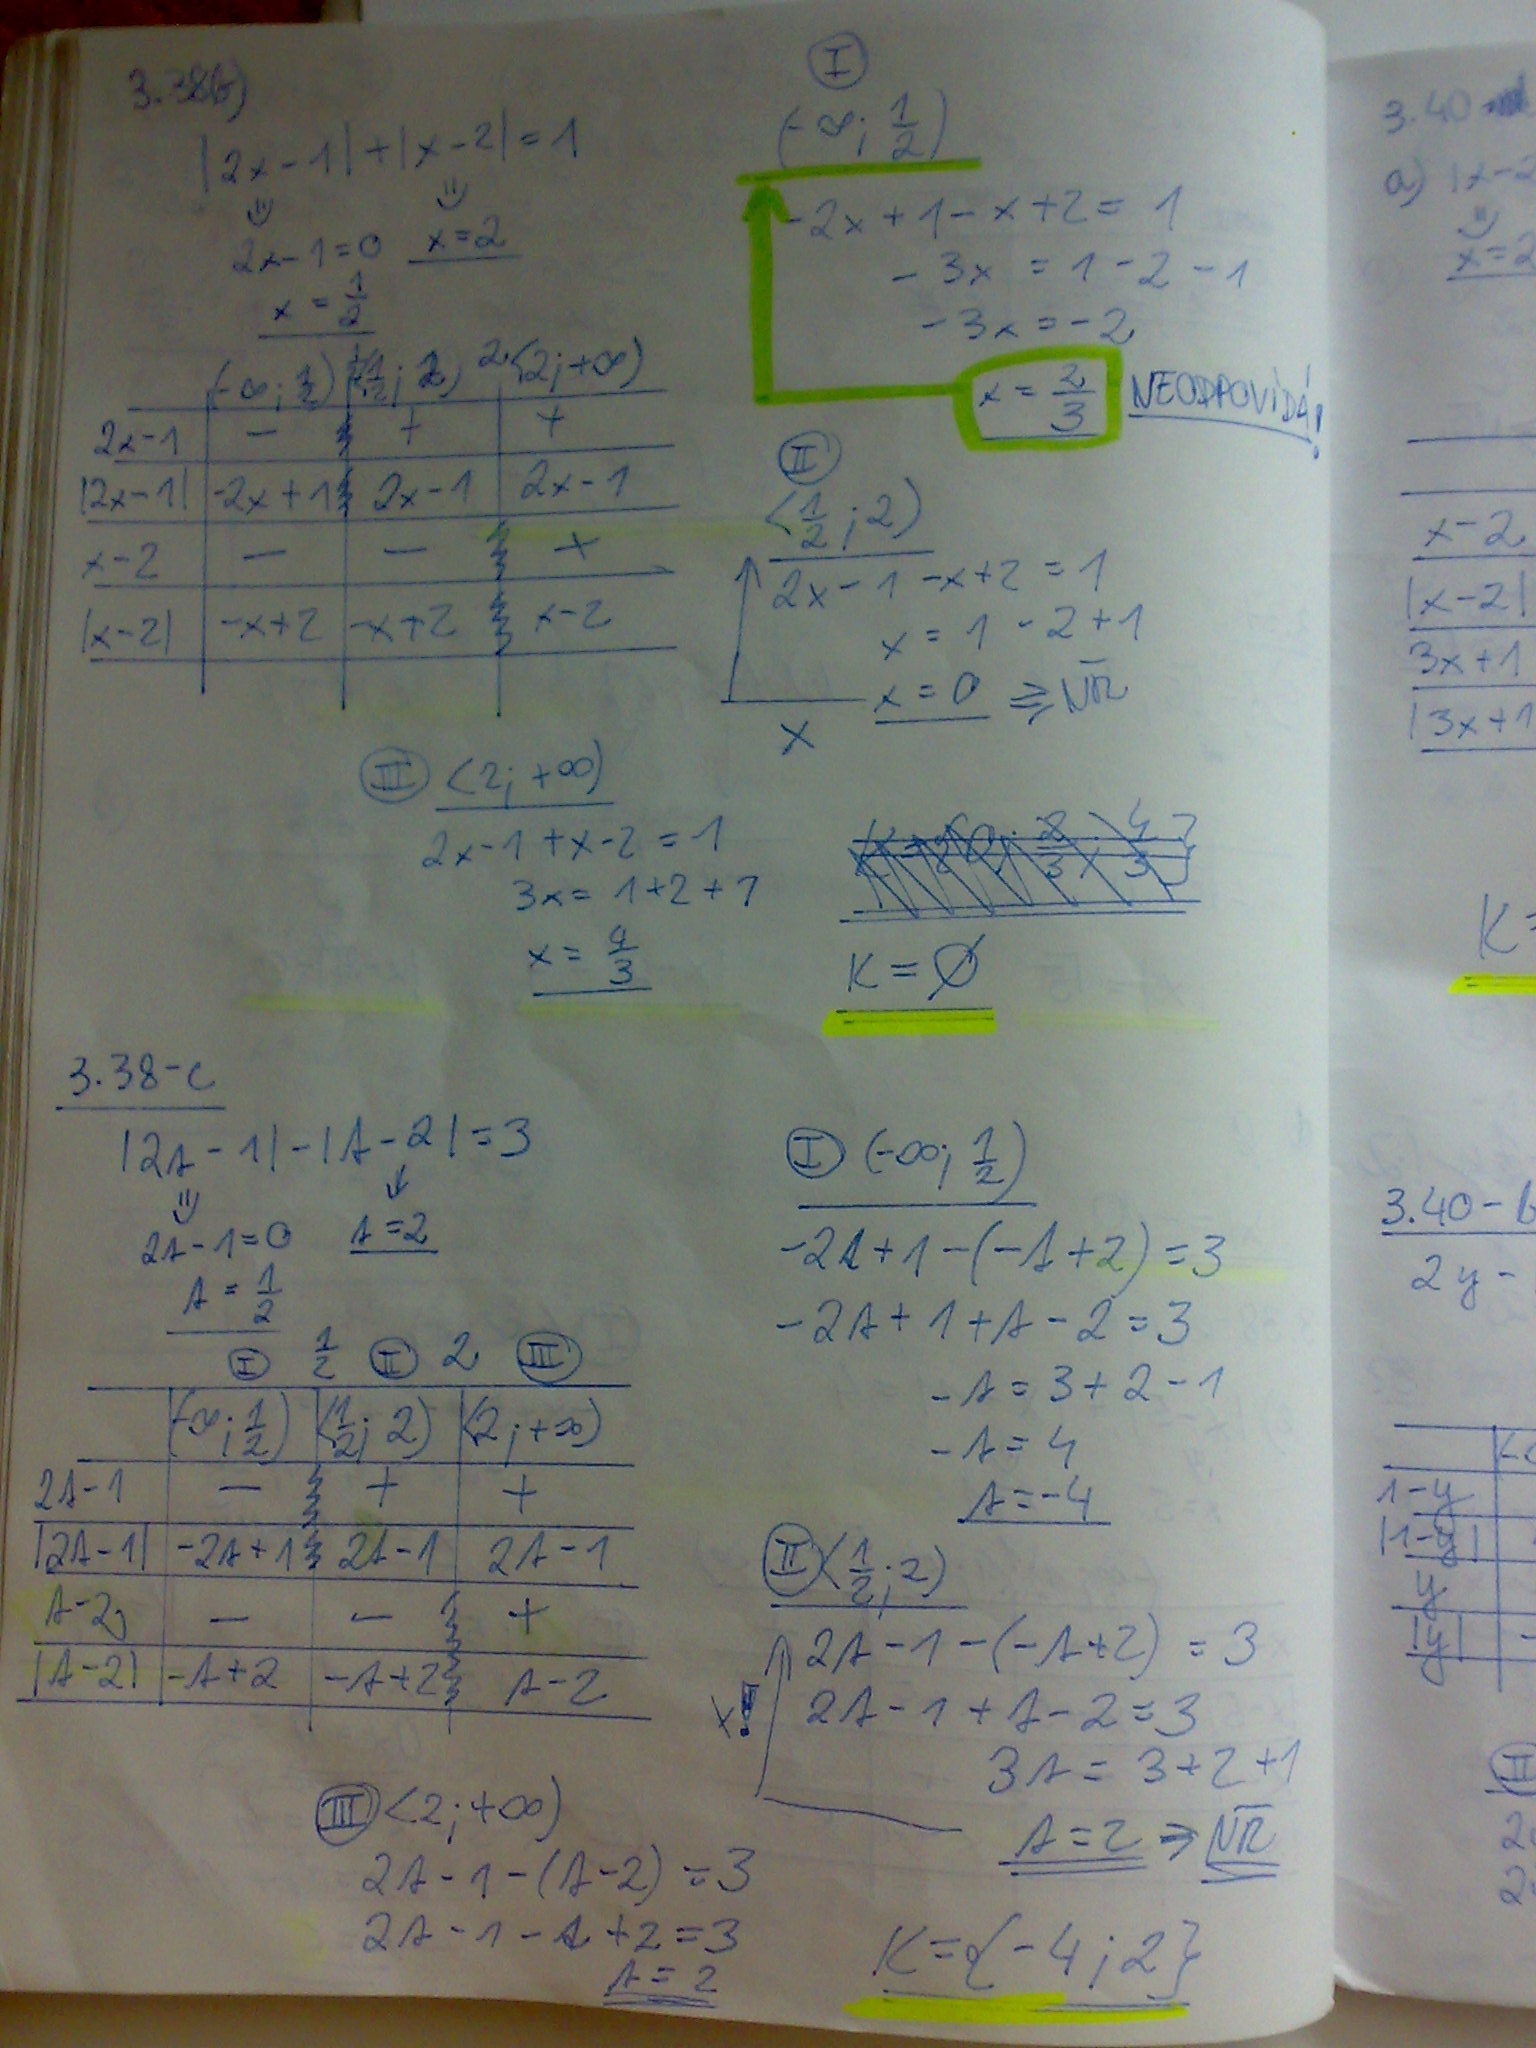 3.38b)
|2x-1|+|x-2|=1
2x-1=0 x=2
x = 1/2
(-∞; 1/2) <1/2; 2) 2 <2; +∞)
2x-1 − + +
|2x-1| -2x+1 2x-1 2x-1
x-2 − − +
|x-2| -x+2 -x+2 x-2
I
(-∞; 1/2)
-2x+1-x+2=1
-3x = 1-2-1
-3x=-2
x = 2/3 NEODPOVÍDÁ!
II
<1/2; 2)
2x-1-x+2=1
x=1-2+1
x=0 => NŘ
x
III <2; +∞)
2x-1+x-2=1
3x=1+2+1
x= 4/3
K=Ø
3.38-c
|2A-1|-|A-2|=3
2A-1=0 A=2
A = 1/2
I 1/2 II 2 III
(-∞; 1/2) <1/2; 2) <2; +∞)
2A-1 − + +
|2A-1| -2A+1 2A-1 2A-1
A-2 − − +
|A-2| -A+2 -A+2 A-2
I (-∞; 1/2)
-2A+1-(-A+2)=3
-2A+1+A-2=3
-A=3+2-1
-A=4
A=-4
II <1/2; 2)
2A-1-(-A+2)=3
2A-1+A-2=3
3A=3+2+1
A=2 => NŘ
III <2; +∞)
2A-1-(A-2)=3
2A-1-A+2=3
A=2
K={-4;2}
3.40
a) |x-2
x=2
x-2
|x-2|
3x+1
|3x+1
K=
3.40-b
2y-
1-y
|1-y|
y
|y|
II